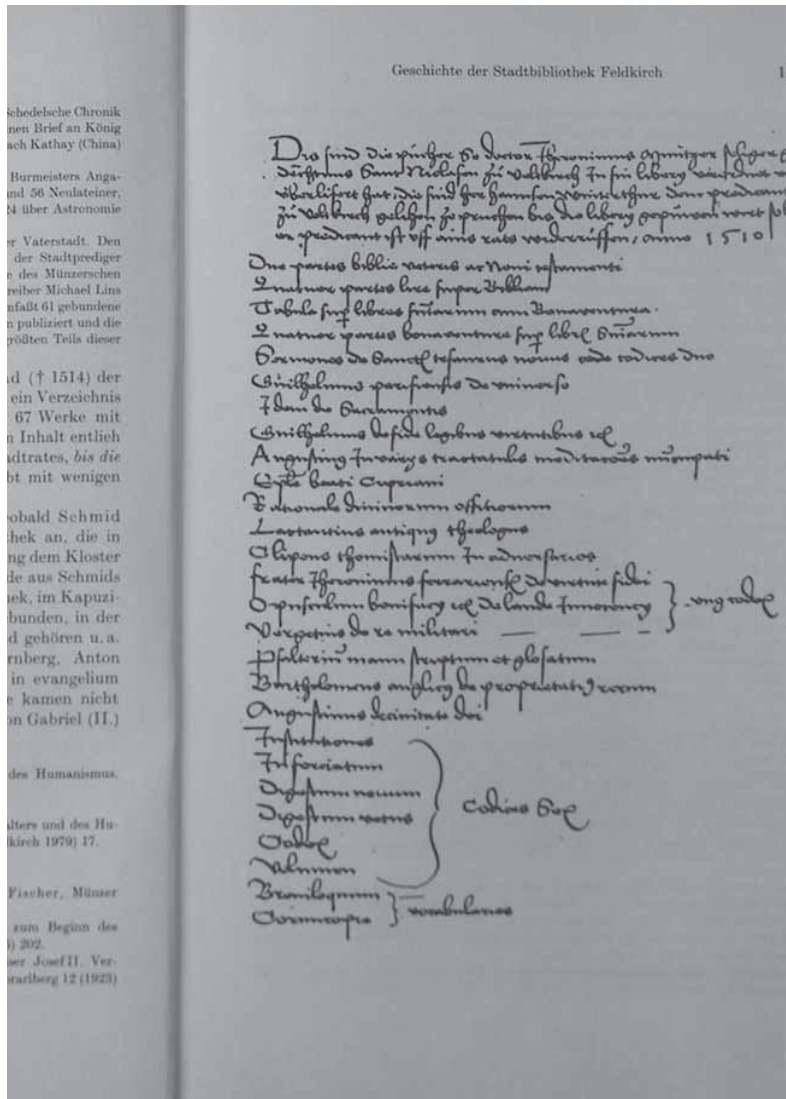 Schedelsche Chronik
nen Brief an König
ach Kathay (China)
Burmeisters Anga-
und 56 Neulateiner,
24 über Astronomie
er Vaterstadt. Den
der Stadtprediger
e des Münzerschen
reiber Michael Lins
nfaßt 61 gebundene
n publiziert und die
größten Teils dieser
nd († 1514) der
ein Verzeichnis
67 Werke mit
n Inhalt entlich
adtrates, bis die
bt mit wenigen
eobald Schmid
hek an, die in
ng dem Kloster
de aus Schmids
ek, im Kapuzi-
bunden, in der
d gehören u. a.
rnberg, Anton
in evangelium
e kamen nicht
on Gabriel (II.)
des Humanismus.
alters und des Hu-
kirch 1979) 17.
Fischer, Münzer
zum Beginn des
) 202.
ser Josef II. Ver-
rarlberg 12 (1923)
Geschichte der Stadtbibliothek Feldkirch 1
Dis sind die pücher so doctor Iheronimus Müntzer seliger
Sant Nicolasen zů veltkirch In sin libery verordnet
überlifert hat, die sind her hannsen dem predicant
zů veltkirch gelihen zu pruchen bis die libery gepuwen wirt
er predicant ist uff ains rats widerrüffen, anno 1510
Due partes biblie veteris ac Noui testamenti
Quatuor partes lire super Bibliam
Tabula sup libros sniarum cum Bonauentura.
Quatuor partes bonauenture sup libr Sniarum
Sermones de Sanct tesaurus nouus codices duo
Guilhelmus parisiensis de uniuerso
Idem de Sacramentis
Guilhelmus de fide legibus virtutibus
Augustinus In varys tractatulis
Eple beati Cipriani
Rationale diuinorum offitiorum
Lactantius antiquus theologus
Clipeus thomistarum In aduersarios
frater Iheronimus ferrariens de virtute fidei
Opusculum bonifacy de laude Innocency } codex
Vegetius de re militari
Psalterium manu scriptum et glosatum
Bartholomeus anglicus de proprietatibus rerum
Augustinus de ciuitate dei
Institutiones
Inforciatum
Digestum nouum
Digestum vetus } Codices Sex
Codex
Volumen
Breuiloquum
Cornucopie } vocabularius